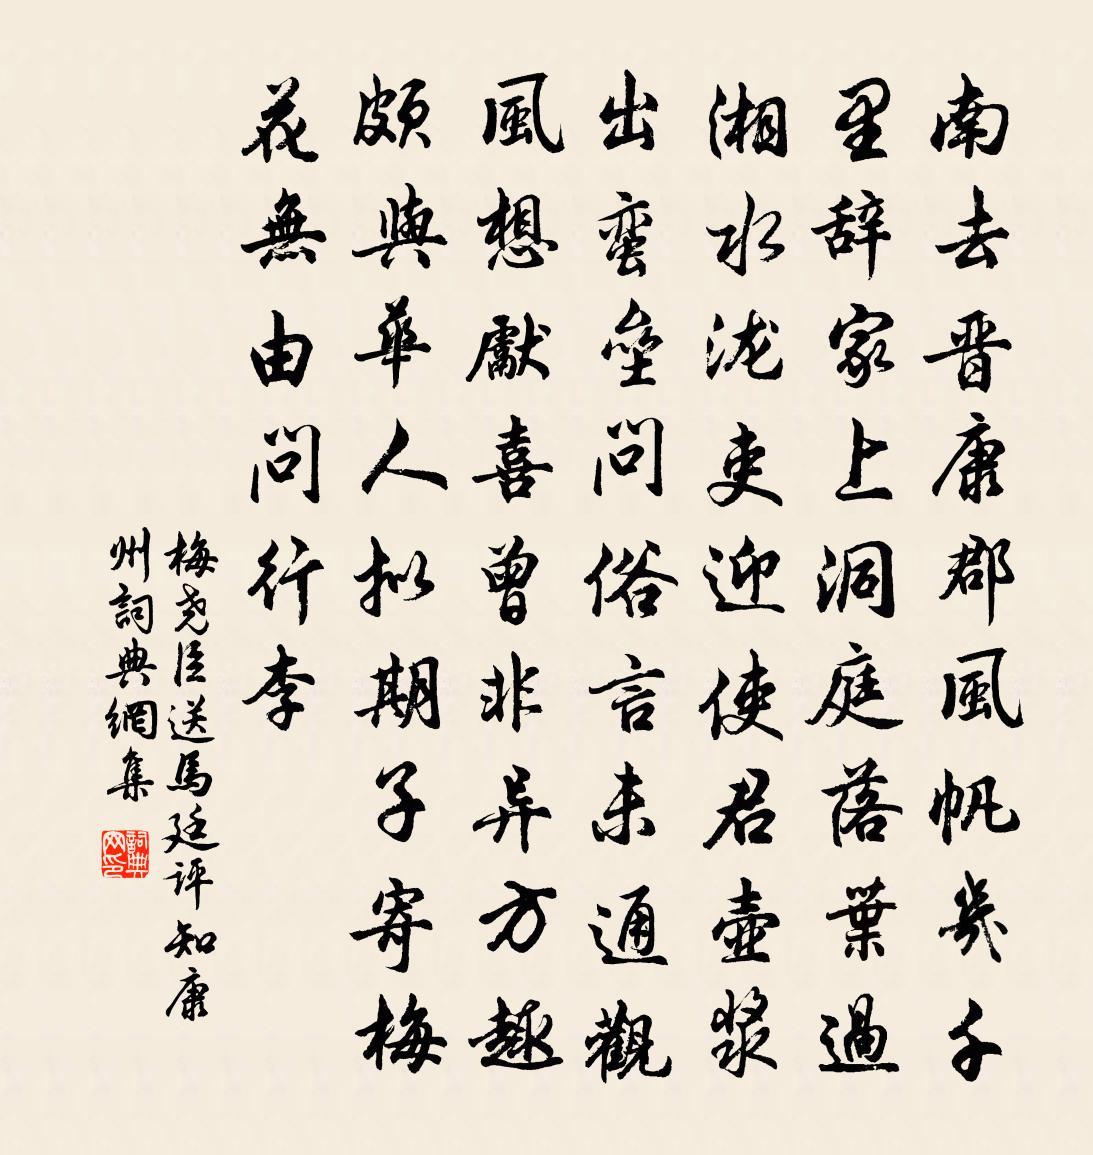 南去晋康郡風帆幾千
里辞家上洞庭落葉過
湘水泷吏迎使君壺漿
出蛮垒問俗言未通觀
風想獻喜曾非异方趣
頗與華人拟期子寄梅
花無由問行李
梅尧臣送馬廷評知康
州詞典網集
詞典網印